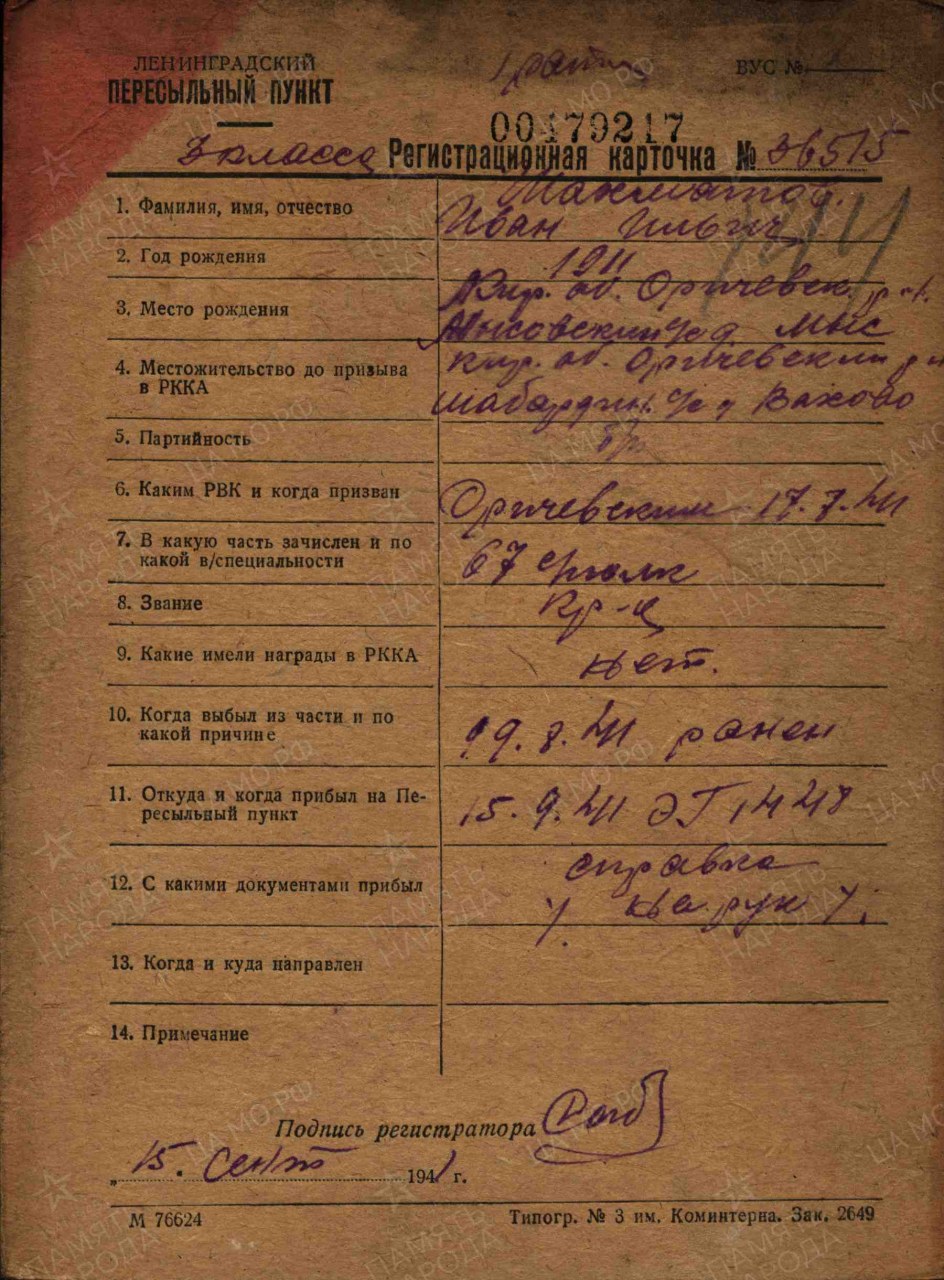 ЛЕНИНГРАДСКИЙ
ПЕРЕСЫЛЬНЫЙ ПУНКТ
ВУС №
00479247
3 класса Регистрационная карточка № 36515
1. Фамилия, имя, отчество
Иван Ильич
2. Год рождения 1911
3. Место рождения Кир. об. Оричевск. р-н.
Мысовский с/с д Мыс
4. Местожительство до призыва
в РККА
Кир. об. Оричевский р-н
Шабардин. с/с д Вахово
5. Партийность б/п
6. Каким РВК и когда призван Оричевским 17.7.41
7. В какую часть зачислен и по
какой в/специальности
67 с/полк
8. Звание кр-ц
9. Какие имели награды в РККА нет.
10. Когда выбыл из части и по
какой причине
19.8.41 ранен
11. Откуда и когда прибыл на Пе-
ресыльный пункт
15.9.41 ЭГ 1448
12. С какими документами прибыл справка
13. Когда и куда направлен
14. Примечание
Подпись регистратора
„15. Сент 1941 г.
М 76624
Типогр. № 3 им. Коминтерна. Зак. 2649
ПАМЯТЬ НАРОДА
ЦА МО.РФ